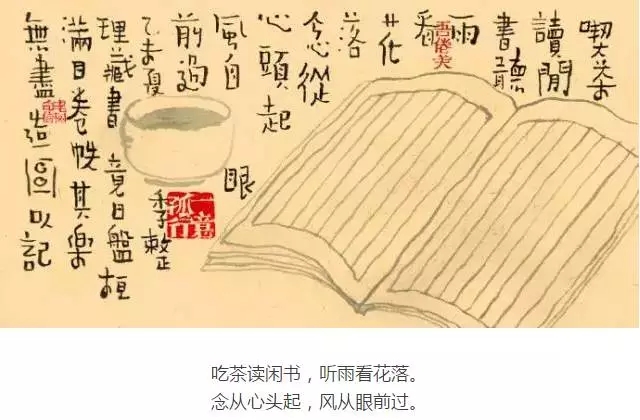 喫茶
讀閒
書聽
雨
看
花
落
念從
心頭起
風自眼
前過
乙未夏季整
理藏書竟日盤桓
滿目卷帙其樂
無盡造圖以記
一意孤行
吃茶读闲书，听雨看花落。
念从心头起，风从眼前过。